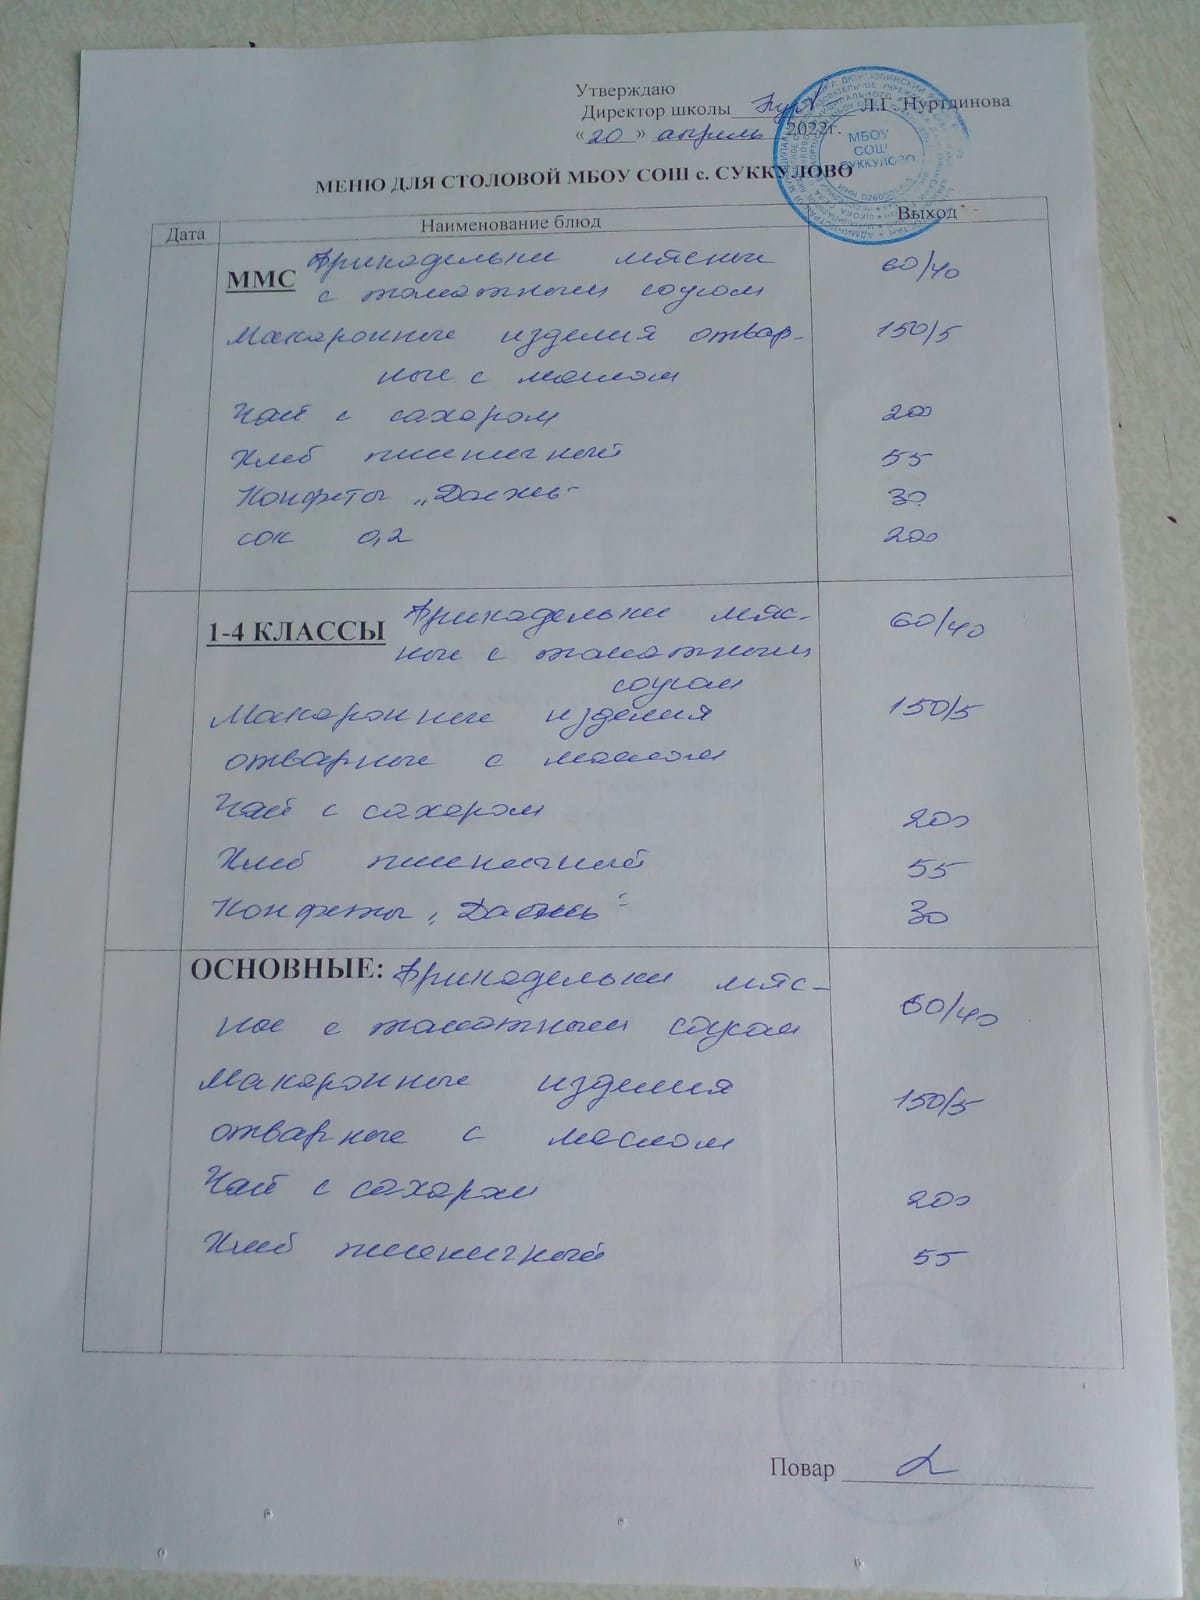 Утверждаю
Директор школы Л.Г. Нуртдинова
«20» апрель 2022г.
МБОУ
СОШ
СУККУЛОВО
МЕНЮ ДЛЯ СТОЛОВОЙ МБОУ СОШ с. СУККУЛОВО
Дата Наименование блюд Выход
ММС Фрикадельки мясные 60/40
с томатным соусом
Макаронные изделия отвар- 150/5
ные с маслом
Чай с сахаром 200
Хлеб пшеничный 55
Конфеты 30
сок 0,2 200
1-4 КЛАССЫ Фрикадельки мяс- 60/40
ные с томатным
соусом
Макаронные изделия 150/5
отварные с маслом
Чай с сахаром 200
Хлеб пшеничный 55
Конфеты 30
ОСНОВНЫЕ: Фрикадельки мяс-
ные с томатным соусом 60/40
Макаронные изделия 150/5
отварные с маслом
Чай с сахаром 200
Хлеб пшеничный 55
Повар